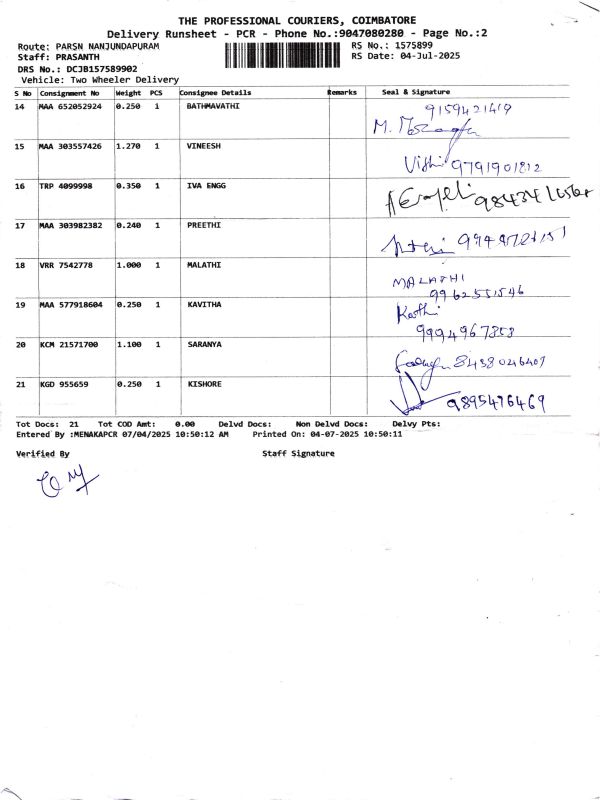 THE PROFESSIONAL COURIERS, COIMBATORE
Delivery Runsheet - PCR - Phone No.:9047080280 - Page No.:2
Route: PARSN NANJUNDAPURAM
RS No.: 1575899
Staff: PRASANTH
RS Date: 04-Jul-2025
DRS No.: DCJB157589902
Vehicle: Two Wheeler Delivery
S No Consignment No Weight PCS Consignee Details Remarks Seal & Signature
14 MAA 652052924 0.250 1 BATHMAVATHI 9159421419
M.
15 MAA 303557426 1.270 1 VINEESH
9791901812
16 TRP 4099998 0.350 1 IVA ENGG
17 MAA 303982382 0.240 1 PREETHI
18 VRR 7542778 1.000 1 MALATHI MALATHI
9962551546
19 MAA 577918604 0.250 1 KAVITHA
9994967858
20 KCM 21571700 1.100 1 SARANYA 8438026407
21 KGD 955659 0.250 1 KISHORE
9895476469
Tot Docs: 21 Tot COD Amt: 0.00 Delvd Docs: Non Delvd Docs: Delvy Pts:
Entered By :MENAKAPCR 07/04/2025 10:50:12 AM Printed On: 04-07-2025 10:50:11
Verified By Staff Signature